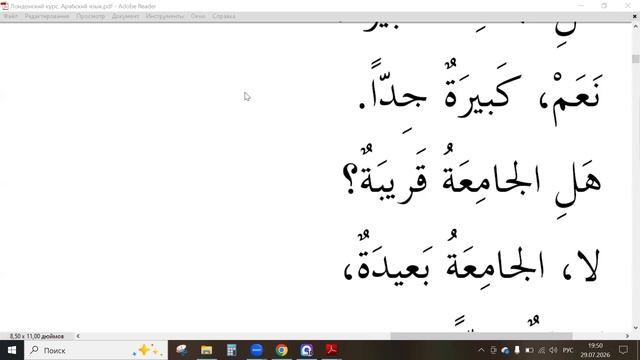 Лондонский курс. Арабский язык.pdf - Adobe Reader
Файл Редактирование Просмотр Документ Инструменты Окно Справка
نَعَمْ، كَبيرَةٌ جِدّاً.
هَلِ الجامِعَةُ قَريبَةٌ؟
لا، الجامِعَةُ بَعيدَةٌ،
8,50 x 11,00 дюймов
Поиск
РУС
19:50
29.07.2026